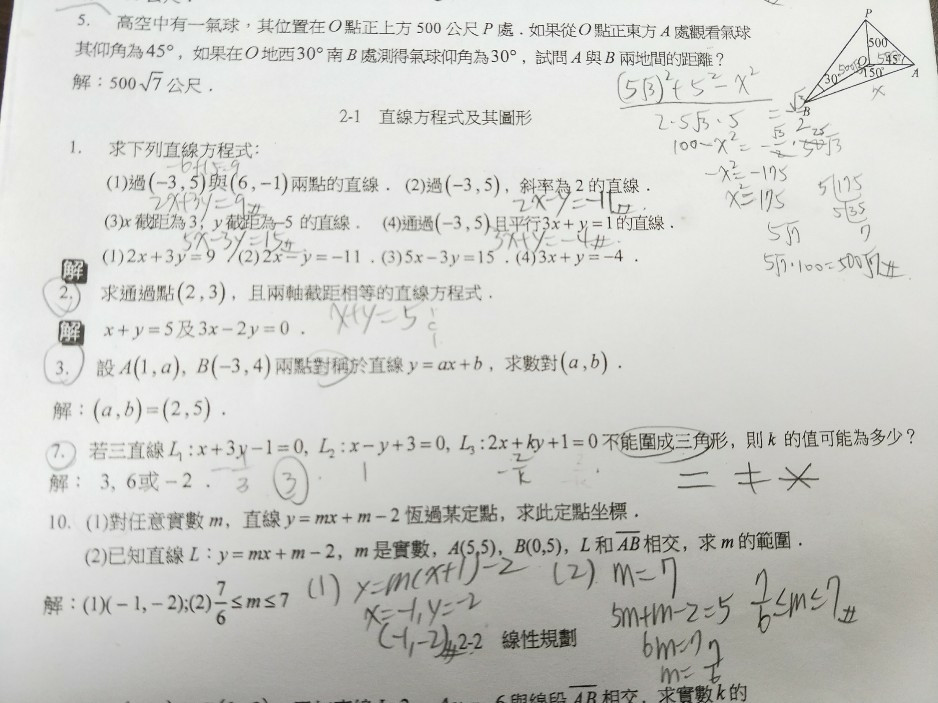 5. 高空中有一氣球，其位置在O點正上方500公尺P處．如果從O點正東方A處觀看氣球
其仰角為45°，如果在O地西30°南B處測得氣球仰角為30°，試問A與B兩地間的距離？
解：500√7公尺．
P
500
O
45°
30°
150°
A
x
B
(5√3)²+5²-x²
2·5√3·5
100-x²=
-x²=-175
x²=175
5√7
5√7·100=500√7
5 175
5 35
7
2-1 直線方程式及其圖形
1. 求下列直線方程式：
-6+15=9
(1)過(-3,5)與(6,-1)兩點的直線．(2)過(-3,5)，斜率為2的直線．
2x+3y=9 2x-y=-11
(3)x截距為3，y截距為-5的直線．(4)通過(-3,5)且平行3x+y=1的直線．
5x-3y=15 3x+y=-4
解 (1)2x+3y=9．(2)2x-y=-11．(3)5x-3y=15．(4)3x+y=-4．
2. 求通過點(2,3)，且兩軸截距相等的直線方程式．
解 x+y=5及3x-2y=0．
x+y=5
3. 設A(1,a)，B(-3,4)兩點對稱於直線y=ax+b，求數對(a,b)．
解：(a,b)=(2,5)．
7. 若三直線L₁:x+3y-1=0, L₂:x-y+3=0, L₃:2x+ky+1=0不能圍成三角形，則k的值可能為多少？
-1/3 1 -2/k
解： 3, 6或-2．
③
10. (1)對任意實數m，直線y=mx+m-2恆過某定點，求此定點坐標．
(2)已知直線L：y=mx+m-2，m是實數，A(5,5)，B(0,5)，L和AB相交，求m的範圍．
解：(1)(-1,-2);(2)7/6≤m≤7
(1) y=m(x+1)-2
x=-1,y=-2
(-1,-2)
(2) m=7
5m+m-2=5
6m=7
m=7/6
7/6≤m≤7
2-2 線性規劃
6與線段AB相交，求實數k的